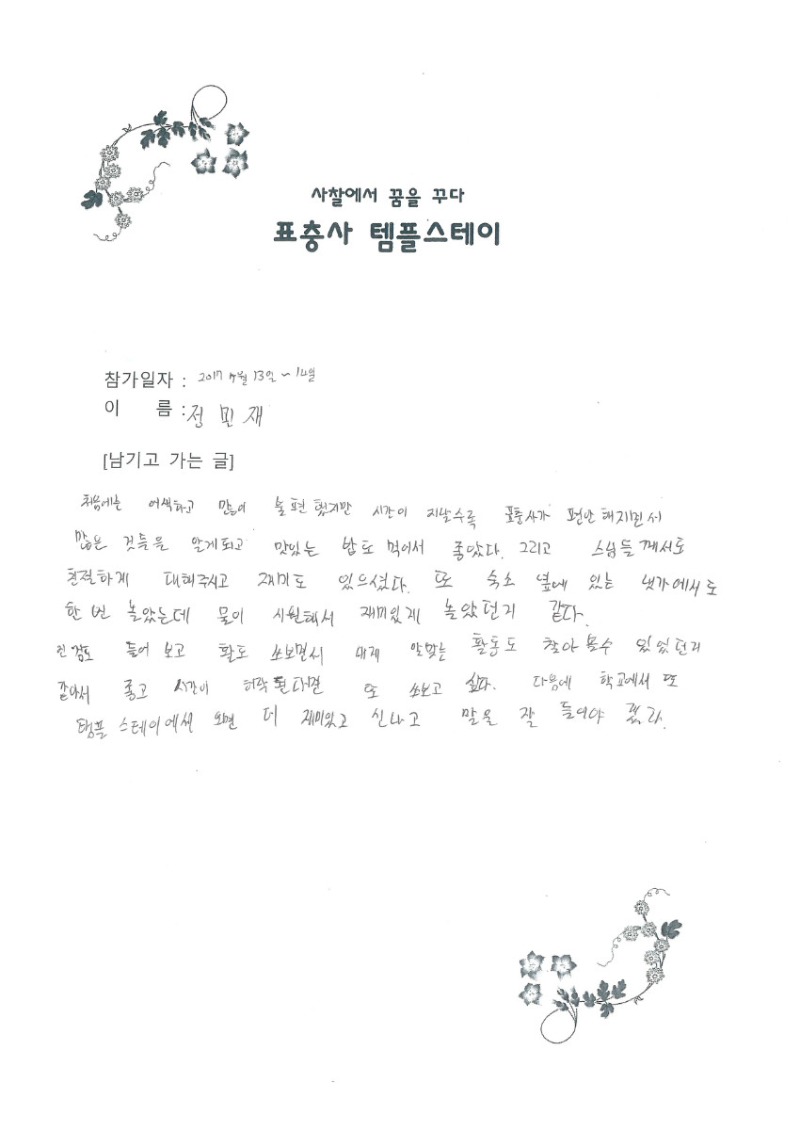 사찰에서 꿈을 꾸다
표충사 템플스테이
참가일자 : 2017 7월 13일 ~ 14일
이 름 : 정민재
[남기고 가는 글]
처음에는 어색하고 많이 불편했지만 시간이 지날수록 표충사가 편안해지면서
많은 것들을 알게되고 맛있는 밥도 먹어서 좋았다. 그리고 스님들께서도
친절하게 대해주시고 재미도 있으셨다. 또 숙소 옆에 있는 냇가에서도
한 번 놀았는데 물이 시원해서 재미있게 놀았던거 같다.
진검도 들어 보고 활도 쏘보면서 내게 알맞는 활동도 찾아볼수 있었던거
같아서 좋고 시간이 허락된다면 또 쏘보고 싶다. 다음에 학교에서 또
템플 스테이에 오면 더 재미있고 신나고 말을 잘 들어야 겠다.